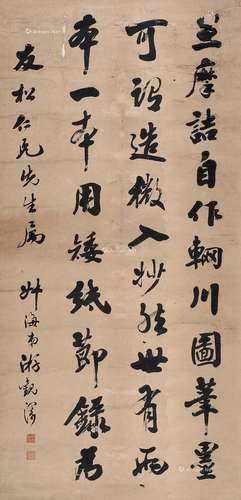 王摩詰自作輞川圖筆墨
可謂造微入妙然世有兩
本一本用矮紙節錄為
友松仁兄先生屬
海南